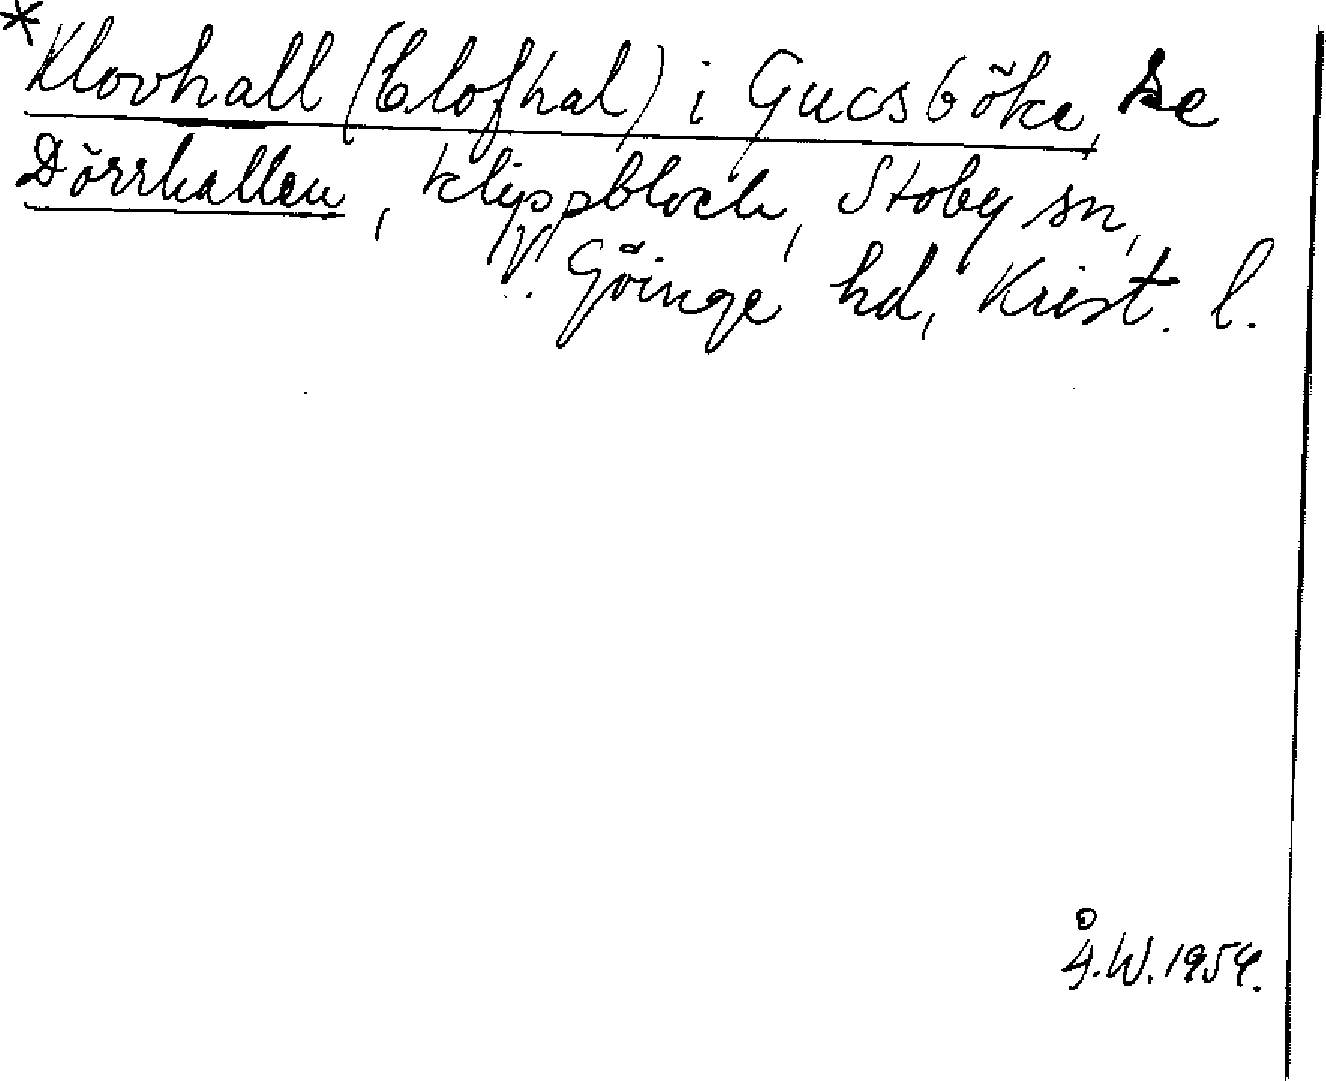 *Klovhall (Clofhal) i Gucsböke, se
Dörrhallen, klippblock, Stoby sn,
V. Göinge hd, Krist. l.
Å.W. 1954.